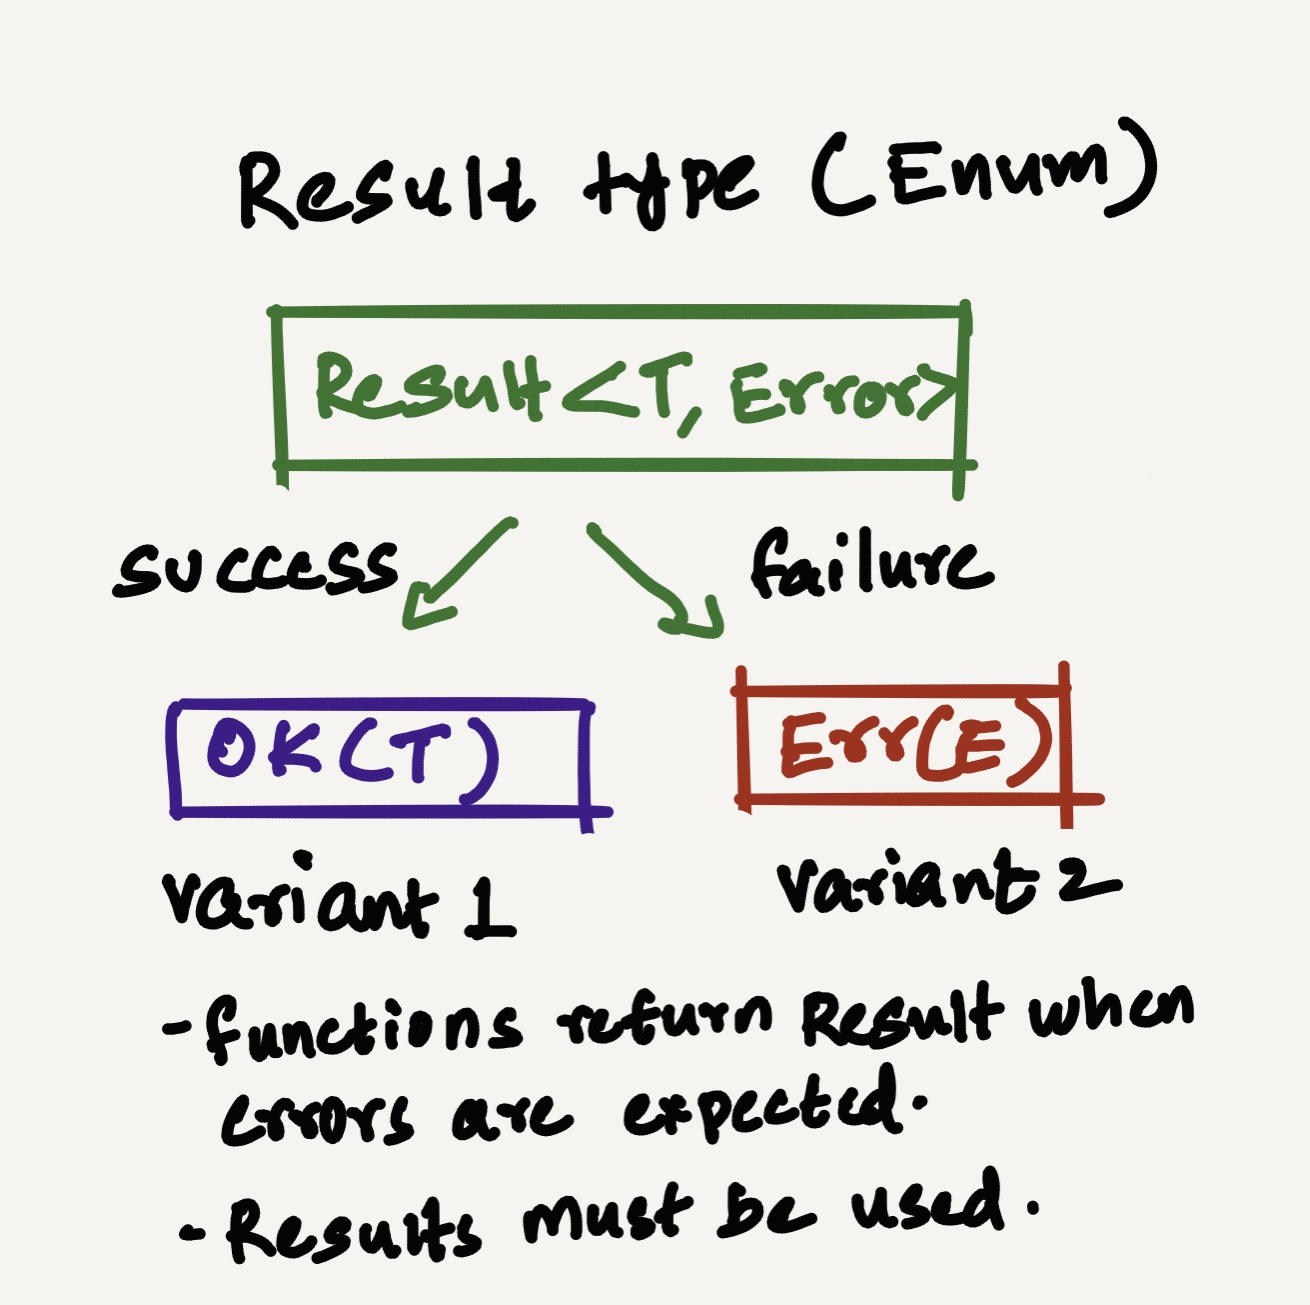 Result type (Enum)
Result<T, Error>
success
failure
OK(T)
Err(E)
variant 1
variant 2
- functions return Result when
errors are expected.
- Results must be used.